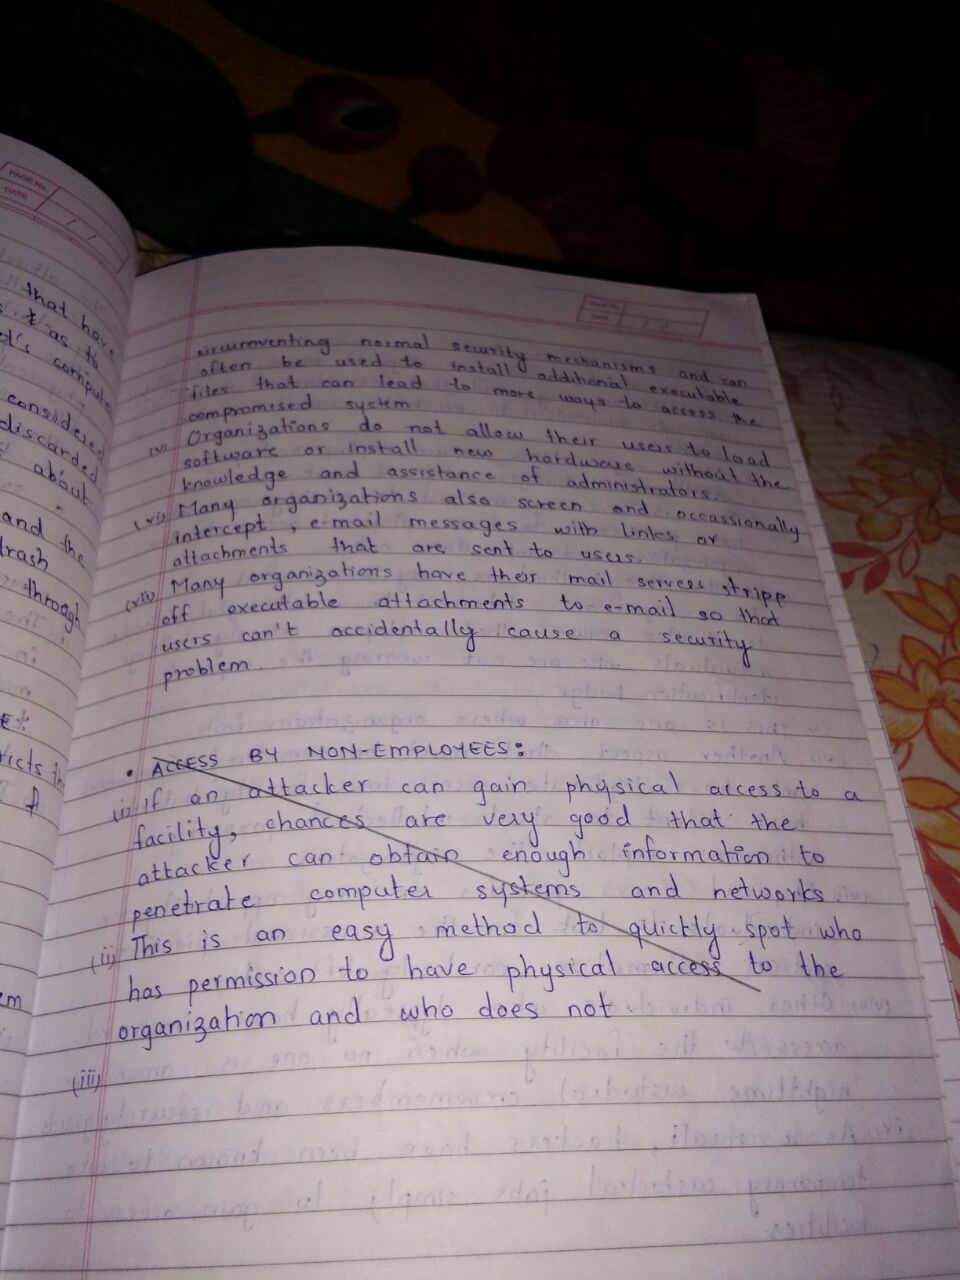 PAGE No.
DATE
that have
as to
's compute
considered
discarded
about
and the
trash
through
ricts th
em
PAGE No.
DATE
circumventing normal security mechanisms and can
often be used to install additional executable
files that can lead to more ways to access the
compromised system
(v) Organizations do not allow their users to load
software or install new hardware without the
knowledge and assistance of administrators.
(vi) Many organizations also screen and occassionally
intercept, e-mail messages with links or
attachments that are sent to users.
(vii) Many organizations have their mail servers stripp
off executable attachments to e-mail so that
users can't accidentally cause a security
problem.
• ACCESS BY NON-EMPLOYEES:
(i) If an attacker can gain physical access to a
facility, chances are very good that the
attacker can obtain enough information to
penetrate computer systems and networks.
(ii) This is an easy method to quickly spot who
has permission to have physical access to the
organization and who does not
(iii)